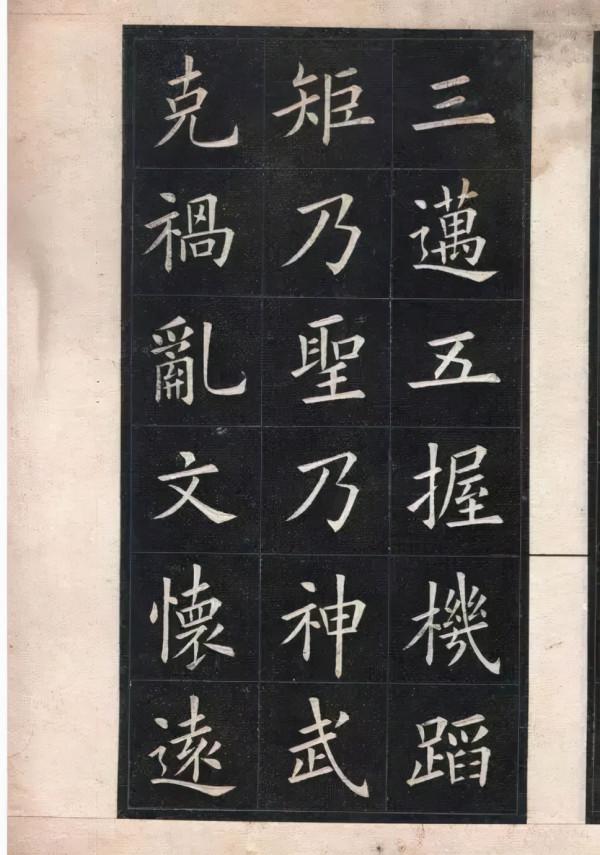 三邁五握機蹈
矩乃聖乃神武
克禍亂文懷遠